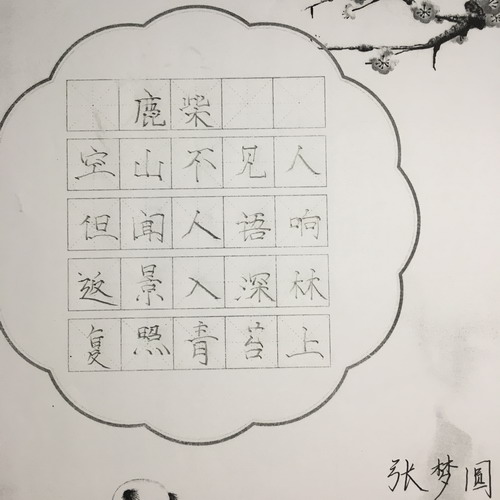 鹿柴
空山不见人
但闻人语响
返景入深林
复照青苔上
张梦圆